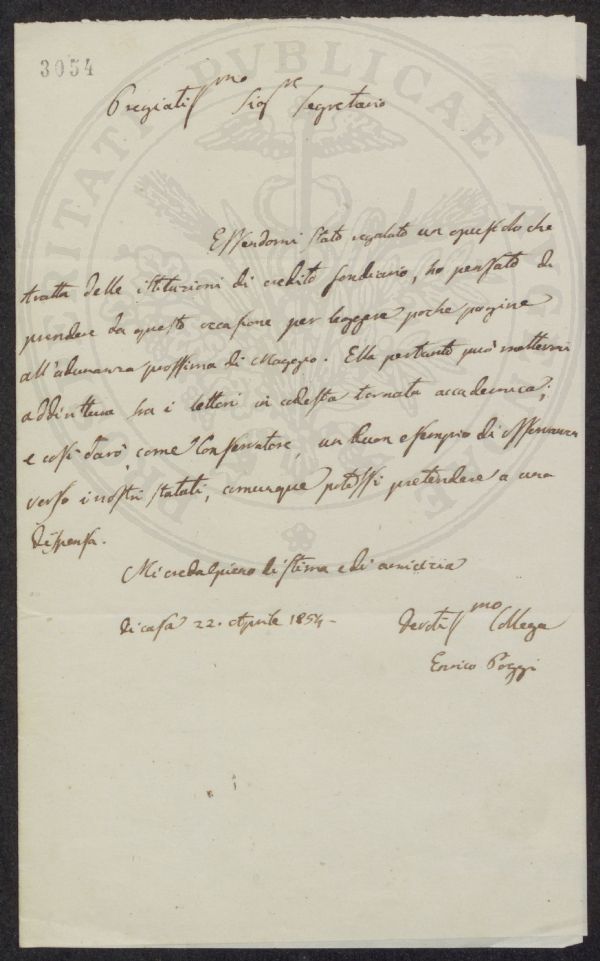 3054
Pregiatiss.mo Sig.re Segretario
Essendomi stato regalato un opuscolo che
tratta delle istituzioni di credito fondiario, ho pensato di
prendere da questo occasione per leggere poche pagine
all'adunanza prossima di Maggio. Ella pertanto può mettermi
addirittura fra i lettori in codesta tornata accademica;
e così darò, come Conservatore, un buon esempio di osservanza
verso i nostri statuti, comunque potessi pretendere a una
dispensa.
Mi creda pieno di stima e di amicizia
Di casa 22. Aprile 1854 -
Devotiss.mo Collega
Enrico Poggi
PVBLICAE